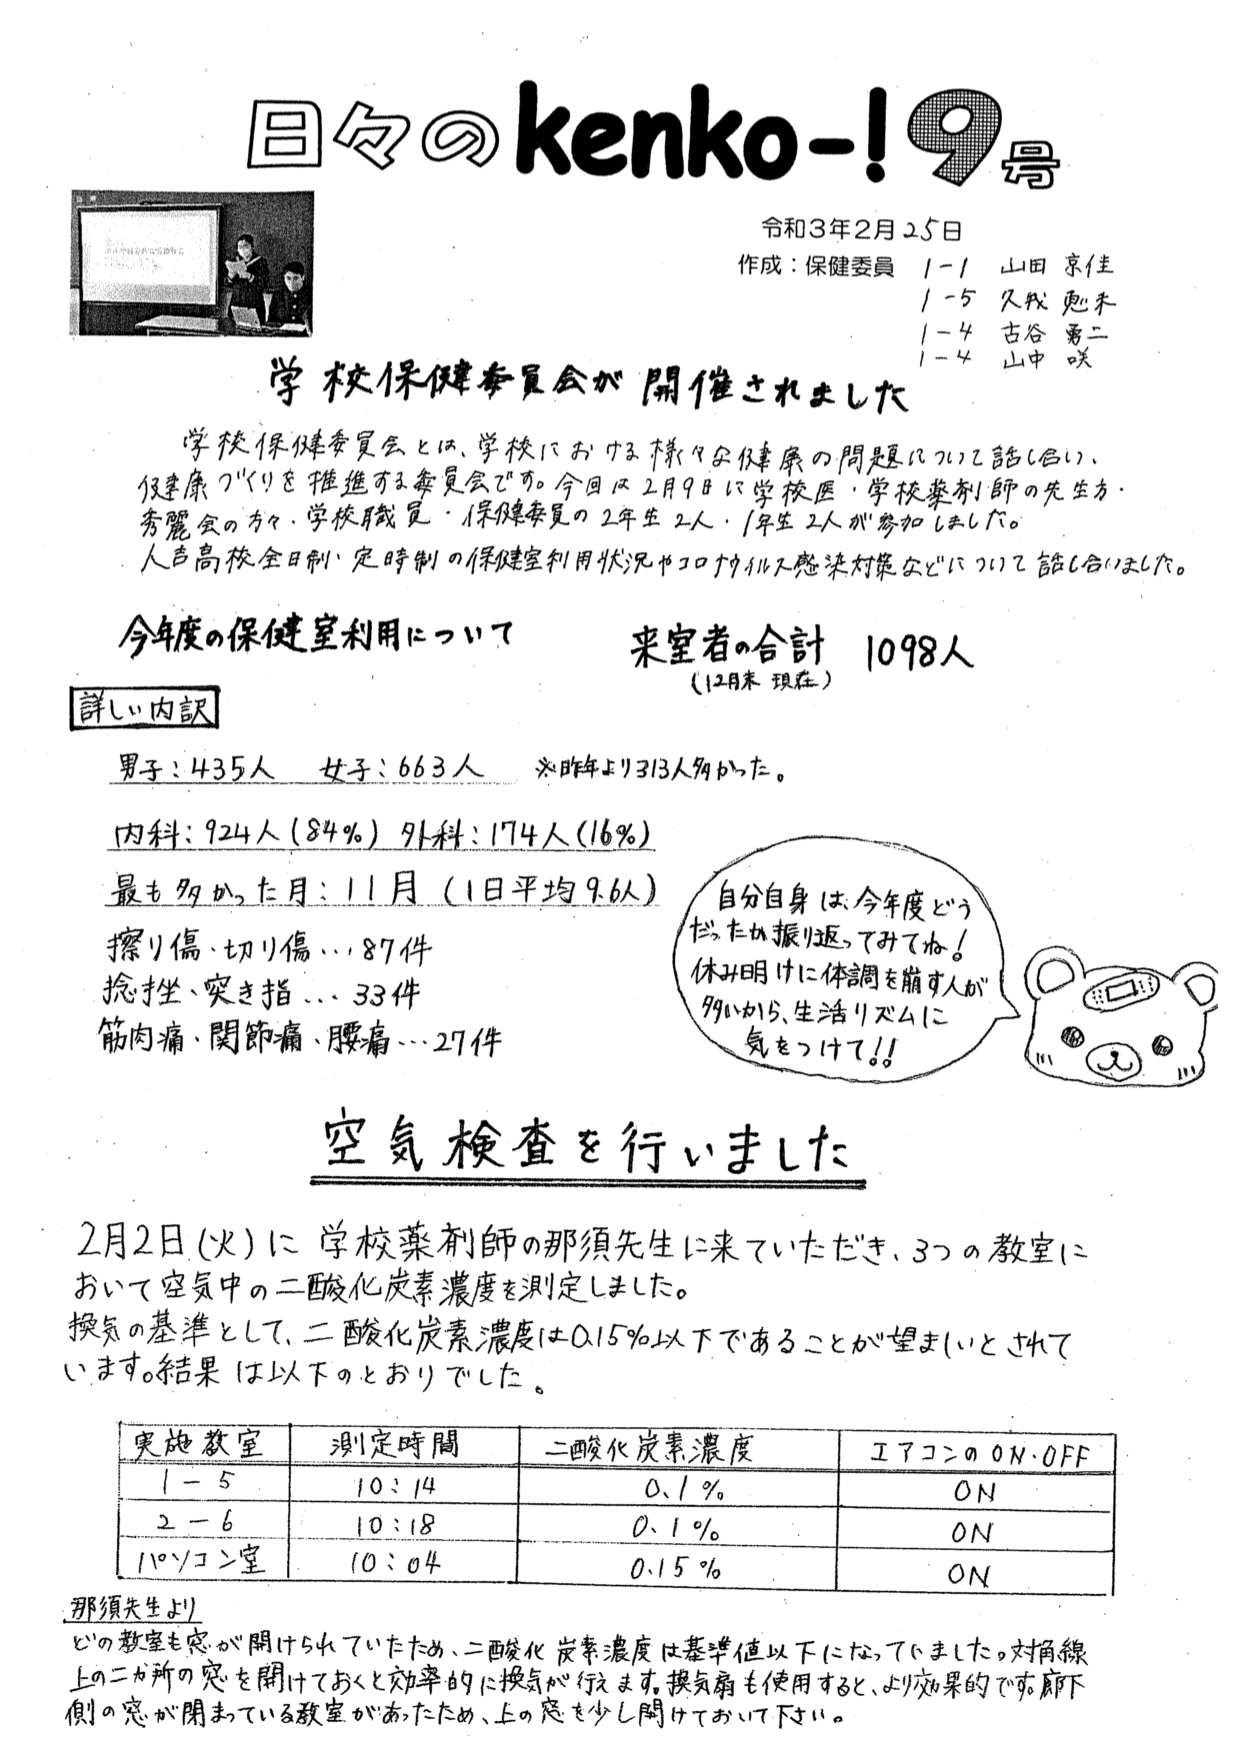 日々のkenko-!9号
令和3年2月25日
作成：保健委員 1-1 山田 京佳
1-5 久我
1-4 古谷 勇二
1-4 山中 咲
学校保健委員会が開催されました
学校保健委員会とは、学校における様々な健康の問題について話し合い、
健康づくりを推進する委員会です。今回は2月9日に学校医・学校薬剤師の先生方・
秀麗会の方々・学校職員・保健委員の2年生2人・1年生2人が参加しました。
人吉高校全日制・定時制の保健室利用状況やコロナウイルス感染対策などについて話し合いました。
今年度の保健室利用について 来室者の合計 1098人
(12月末 現在)
詳しい内訳
男子:435人 女子:663人 ※昨年より313人多かった。
内科:924人(84%) 外科:174人(16%)
最も多かった月:11月(1日平均9.6人)
擦り傷・切り傷…87件
捻挫、突き指…33件
筋肉痛・関節痛・腰痛…27件
自分自身は、今年度どう
だったか振り返ってみてね!
休み明けに体調を崩す人が
多いから、生活リズムに
気をつけて!!
空気検査を行いました
2月2日(火)に 学校薬剤師の那須先生に来ていただき、3つの教室に
おいて空気中の二酸化炭素濃度を測定しました。
換気の基準として、二酸化炭素濃度は0.15%以下であることが望ましいとされて
います。結果は以下のとおりでした。
実施教室 測定時間 二酸化炭素濃度 エアコンのON・OFF
1-5 10:14 0.1% ON
2-6 10:18 0.1% ON
パソコン室 10:04 0.15% ON
那須先生より
どの教室も窓が開けられていたため、二酸化炭素濃度は基準値以下になっていました。対角線
上の二カ所の窓を開けておくと効率的に換気が行えます。換気扇も使用すると、より効果的です。廊下
側の窓が閉まっている教室があったため、上の窓を少し開けておいて下さい。